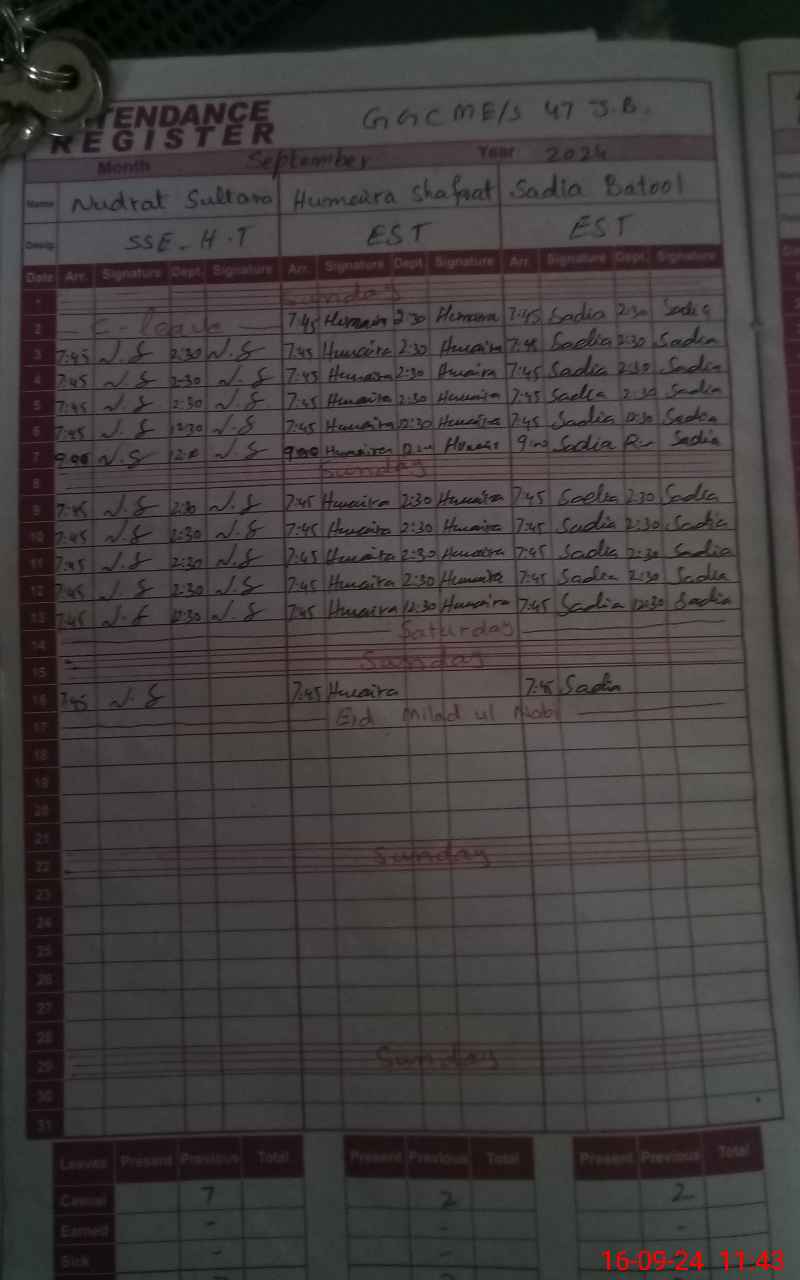 TENDANCE GGCME/S 47 J.B.
REGISTER
Month September Year 2024
Name Nudrat Sultana Humaira Shafaat Sadia Batool
Desig SSE-H.T EST EST
Date Arr. Signature Dept. Signature Arr. Signature Dept. Signature Arr. Signature Dept. Signature
1 Sunday
2 C-leave 7:45 Humaira 2:30 Humaira 7:45 Sadia 2:30 Sadia
3 7:45 N.S 2:30 N.S 7:45 Humaira 2:30 Humaira 7:45 Sadia 2:30 Sadia
4 7:45 N.S 2:30 N.S 7:45 Humaira 2:30 Humaira 7:45 Sadia 2:30 Sadia
5 7:45 N.S 2:30 N.S 7:45 Humaira 2:30 Humaira 7:45 Sadia 2:30 Sadia
6 7:45 N.S 12:30 N.S 7:45 Humaira 12:30 Humaira 7:45 Sadia 12:30 Sadia
7 9:00 N.S N.S 9:00 Humaira Humaira 9:00 Sadia Sadia
8 Sunday
9 7:45 N.S 2:30 N.S 7:45 Humaira 2:30 Humaira 7:45 Sadia 2:30 Sadia
10 7:45 N.S 2:30 N.S 7:45 Humaira 2:30 Humaira 7:45 Sadia 2:30 Sadia
11 7:45 N.S 2:30 N.S 7:45 Humaira 2:30 Humaira 7:45 Sadia 2:30 Sadia
12 7:45 N.S 2:30 N.S 7:45 Humaira 2:30 Humaira 7:45 Sadia 2:30 Sadia
13 7:45 N.S 12:30 N.S 7:45 Humaira 12:30 Humaira 7:45 Sadia 12:30 Sadia
14 Saturday
15 Sunday
16 7:45 N.S 7:45 Humaira 7:45 Sadia
17 Eid Milad ul Nabi
18
19
20
21
22 Sunday
23
24
25
26
27
28
29 Sunday
30
31
Leaves Present Previous Total Present Previous Total Present Previous Total
Casual 7 2 2
Earned - - -
Sick - -
16-09-24 11:43